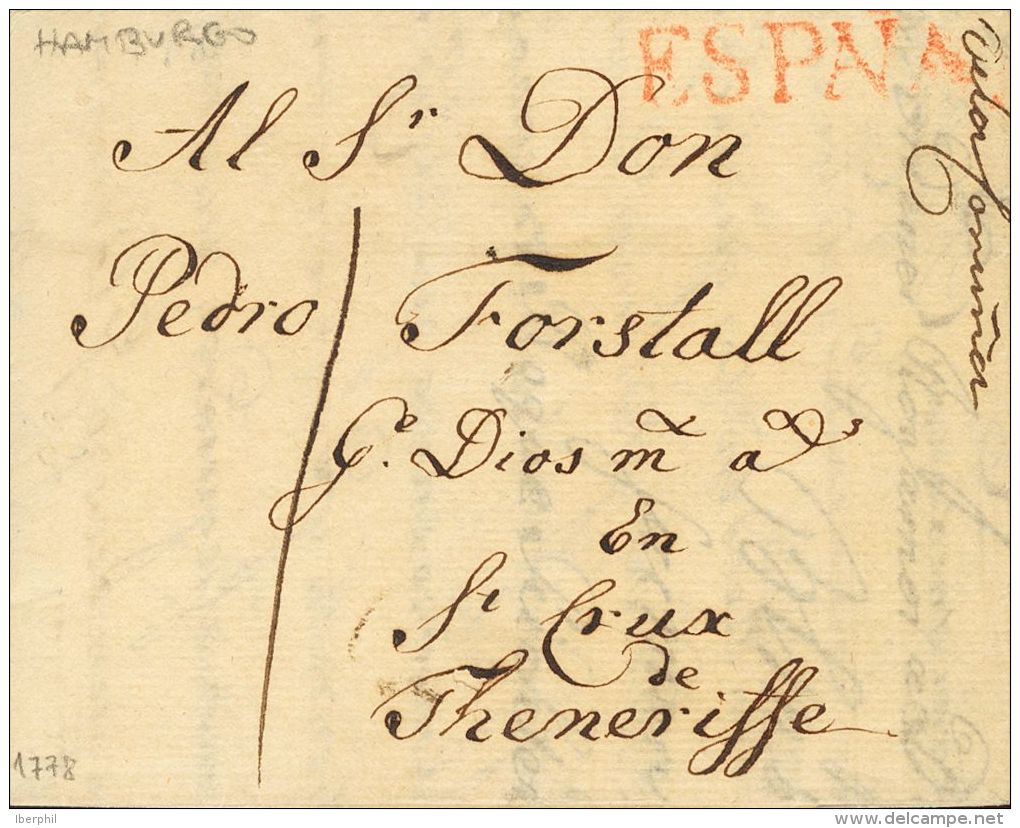 HAMBURGO
ESPAÑA
Al Sr Don
Pedro Forstall
Ge. Dios m a as
En
St Crux
de
Theneriffe
Coruña
1778
Iberphil
www.delcampe.net